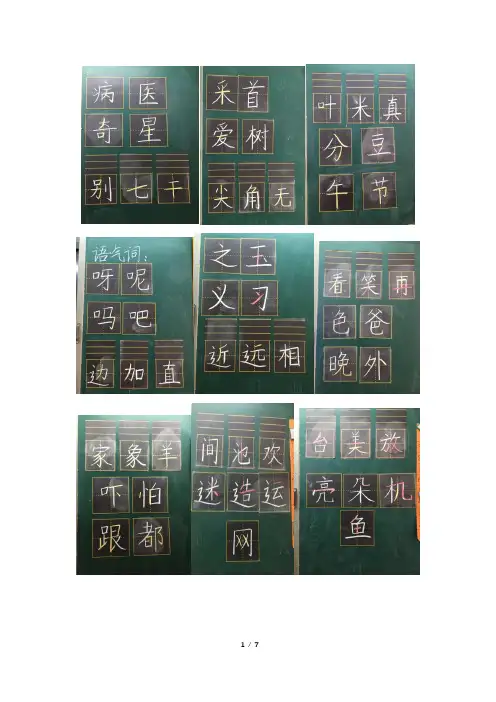 病 医
奇 星
别 七 干
采 首
爱 树
尖 角 无
叶 米 真
分 豆
午 节
语气词：
呀 呢
吗 吧
边 加 直
之 玉
义 习
近 远 相
看 笑 再
色 爸
晚 外
家 象 羊
吓 怕
跟 都
间 池 欢
迷 造 运
网
台 美 放
亮 朵 机
鱼
1 / 7